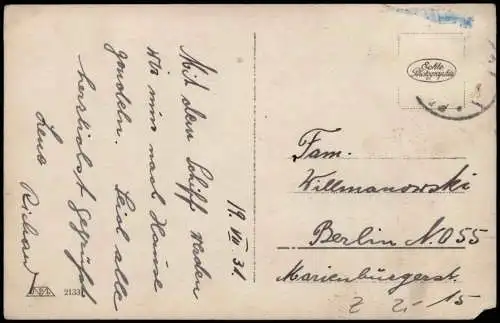 Mit dem Schiff werden
wir nun nach Hause
gondeln. Seid alle
herzlichst gegrüßt
Lene Richard
19. VII 31.
Echte
Photographie
Fam.
Willmanowski
Berlin N.O 55
Marienburgerst.
15
2133